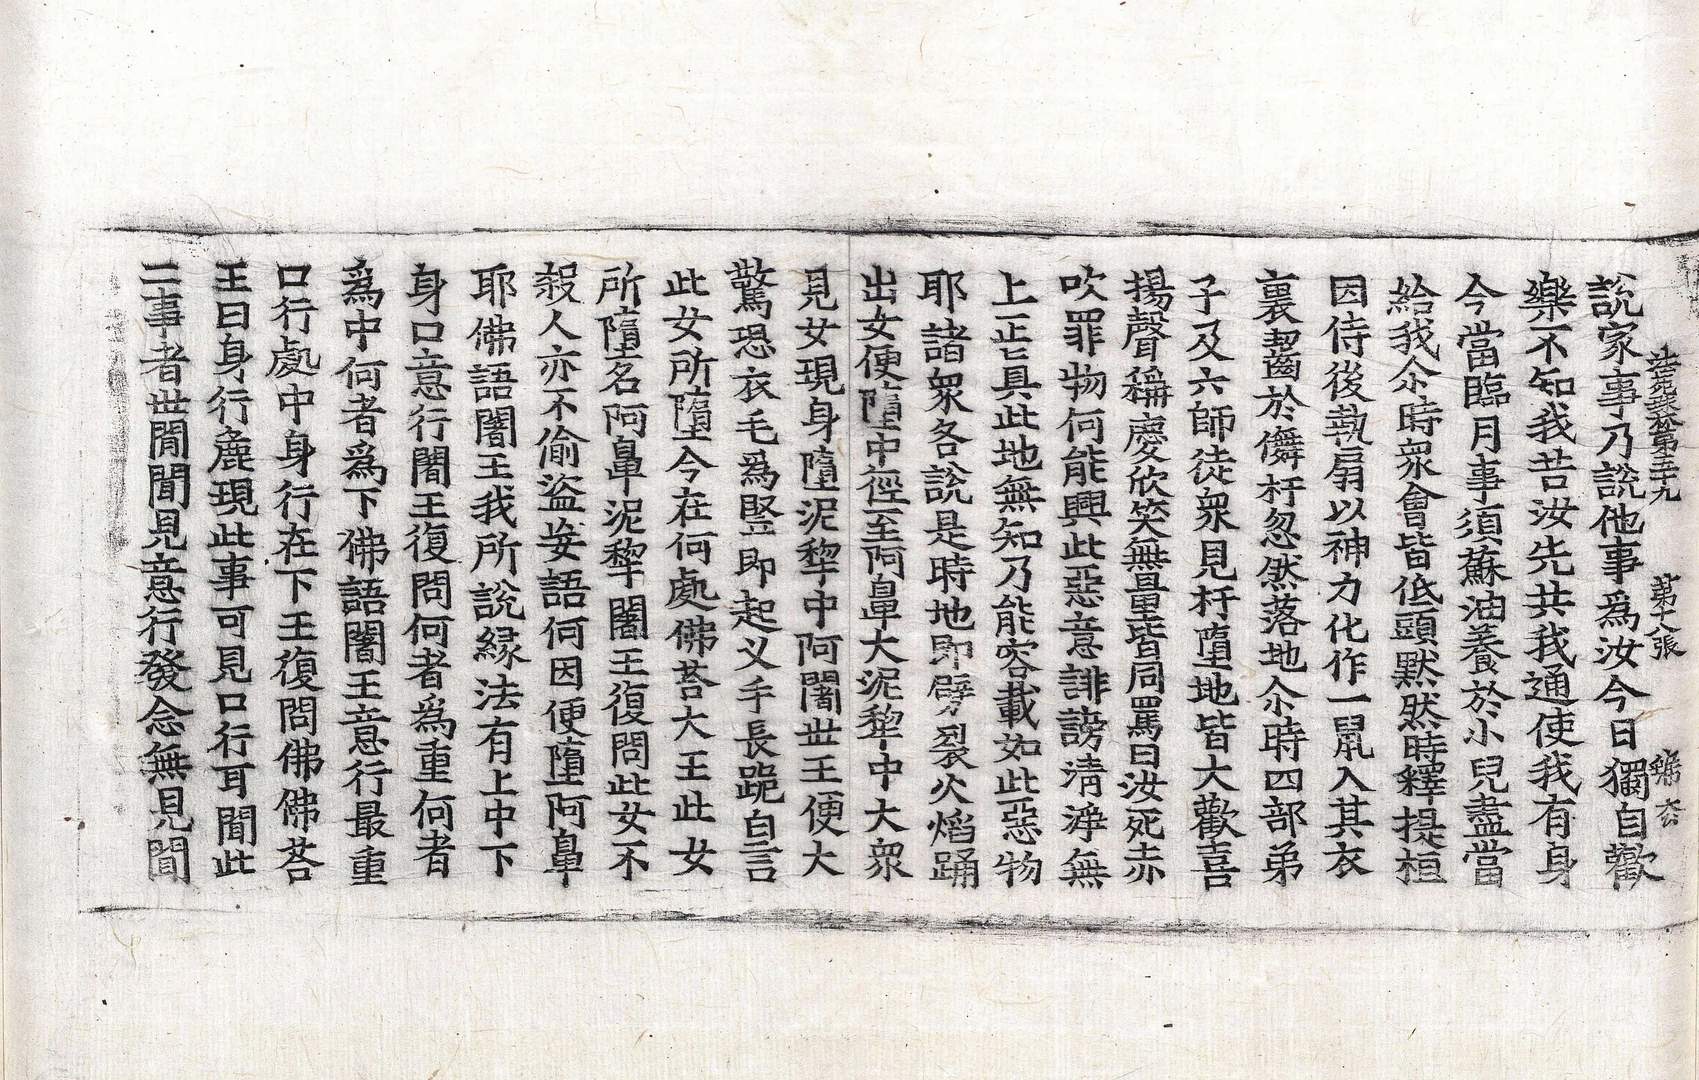 法苑珠林第五十九 第六張
說家事乃說他事爲汝今日獨自歡
樂不知我苦汝先共我通使我有身
今當臨月事須蘇油養於小兒盡當
給我尒時衆會皆低頭默然時釋提桓
因侍後執扇以神力化作一鼠入其衣
裏嚙於儛杅忽然落地尒時四部弟
子及六師徒衆見杅墮地皆大歡喜
揚聲稱慶欣笑無量皆同罵曰汝死赤
吹罪物何能興此惡意誹謗清淨無
上正真此地無知乃能容載如此惡物
耶諸衆各說是時地即劈裂火焰踊
出女便墮中徑至阿鼻大泥犂中大衆
見女現身墮泥犂中阿闍世王便大
驚恐衣毛爲竪即起叉手長跪白言
此女所墮今在何處佛荅大王此女
所墮名阿鼻泥犂闍王復問此女不
殺人亦不偷盜妄語何因便墮阿鼻
耶佛語闍王我所說緣法有上中下
身口意行闍王復問何者爲重何者
爲中何者爲下佛語闍王意行最重
口行處中身行在下王復問佛佛荅
王曰身行麁現此事可見口行耳聞此
二事者世間聞見意行發念無見聞